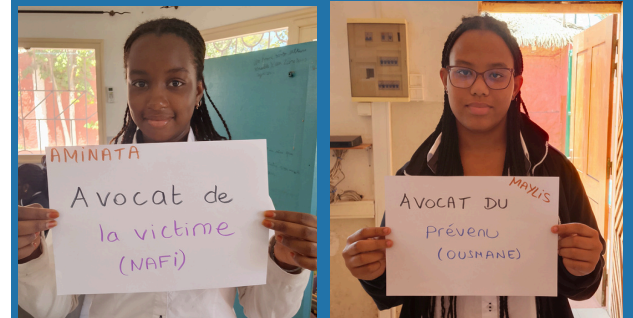 AMINATA
Avocat de
la victime
(NAFi)
MAYLIS
AVOCAT DU
Prévenu
(OUSMANE)